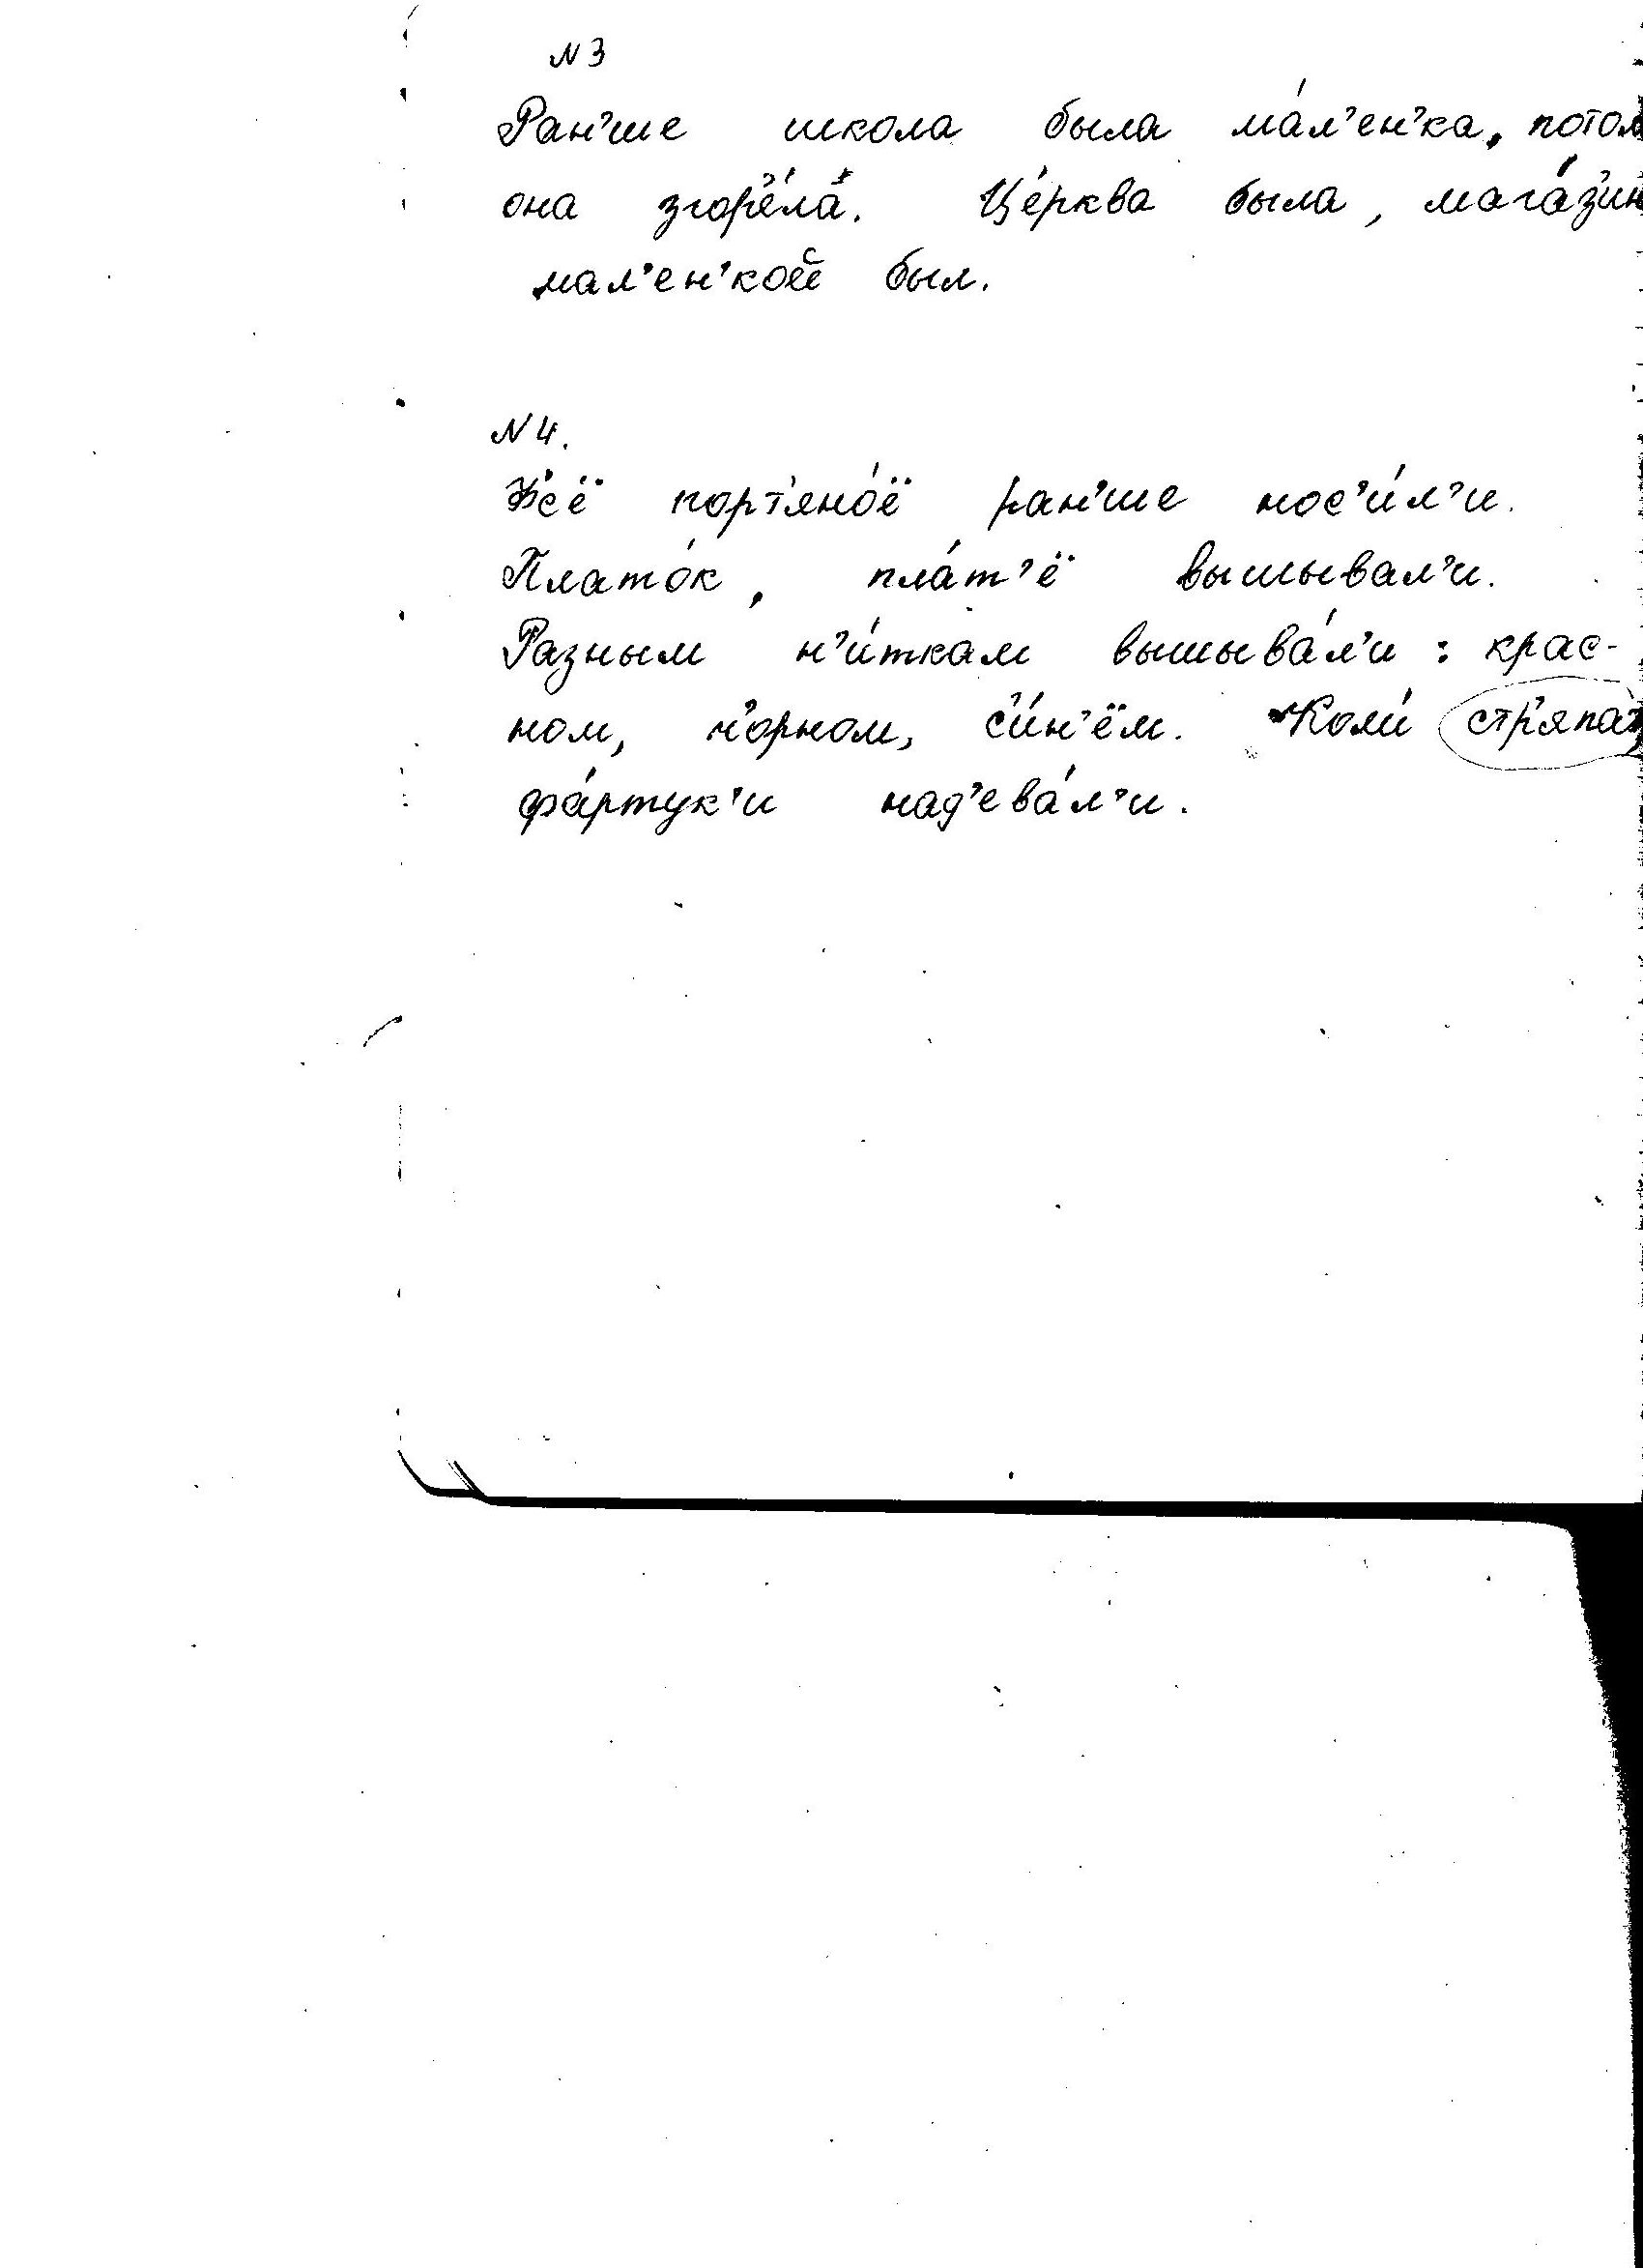 N 3
Ран'ше школа была ма́л'ен'ка, потом
она згор'е́ла́. Це́рква была, мага́з'ин
мал'ен'кой был.
N 4.
В'с'ё порт'яно́ё ран'ше нос'и́л'и.
Плато́к, пла́т'ё вышывал'и.
Разным н'и́ткам вышыва́л'и: крас-
ном, ч'орном, с'и́н'ём. Коли́ стр'япат'
фа́ртук'и над'ева́л'и.